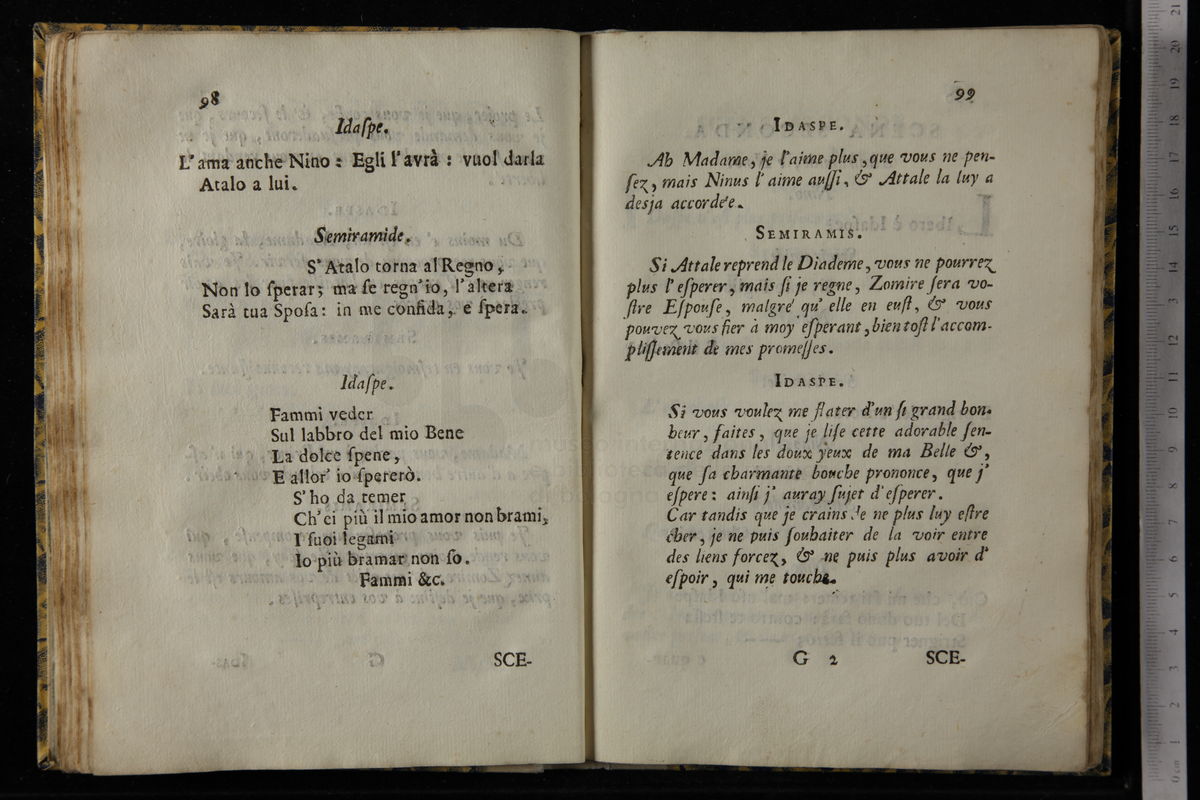 98
Idaſpe.
L'ama anche Nino : Egli l'avrà : vuol darla
Atalo a lui.
Semiramide.
S'Atalo torna al Regno,
Non lo ſperar; ma ſe regn'io, l'altera
Sarà tua Spoſa: in me confida, e ſpera.
Idaſpe.
Fammi veder
Sul labbro del mio Bene
La dolce ſpene,
E allor' io ſpererò.
S'ho da temer
Ch'ei più il mio amor non brami,
I ſuoi legami
Io più bramar non ſo.
Fammi &c.
SCE-
99
IDASPE.
Ah Madame, je l'aime plus, que vous ne pen-
ſez, mais Ninus l'aime auſſi, & Attale la luy a
desja accordée.
SEMIRAMIS.
Si Attale reprend le Diademe, vous ne pourrez
plus l'eſperer, mais ſi je regne, Zomire ſera vo-
ſtre Eſpouſe, malgré qu'elle en euſt, & vous
pouvez vous fier à moy eſperant, bien toſt l'accom-
pliſſement de mes promeſſes.
IDASPE.
Si vous voulez me flater d'un ſi grand bon-
heur, faites, que je liſe cette adorable ſen-
tence dans les doux yeux de ma Belle &,
que ſa charmante bouche prononce, que j'
eſpere: ainſi j'auray ſujet d'eſperer.
Car tandis que je crains de ne plus luy eſtre
cher, je ne puis ſouhaiter de la voir entre
des liens forcez, & ne puis plus avoir d'
eſpoir, qui me touche.
G 2 SCE-